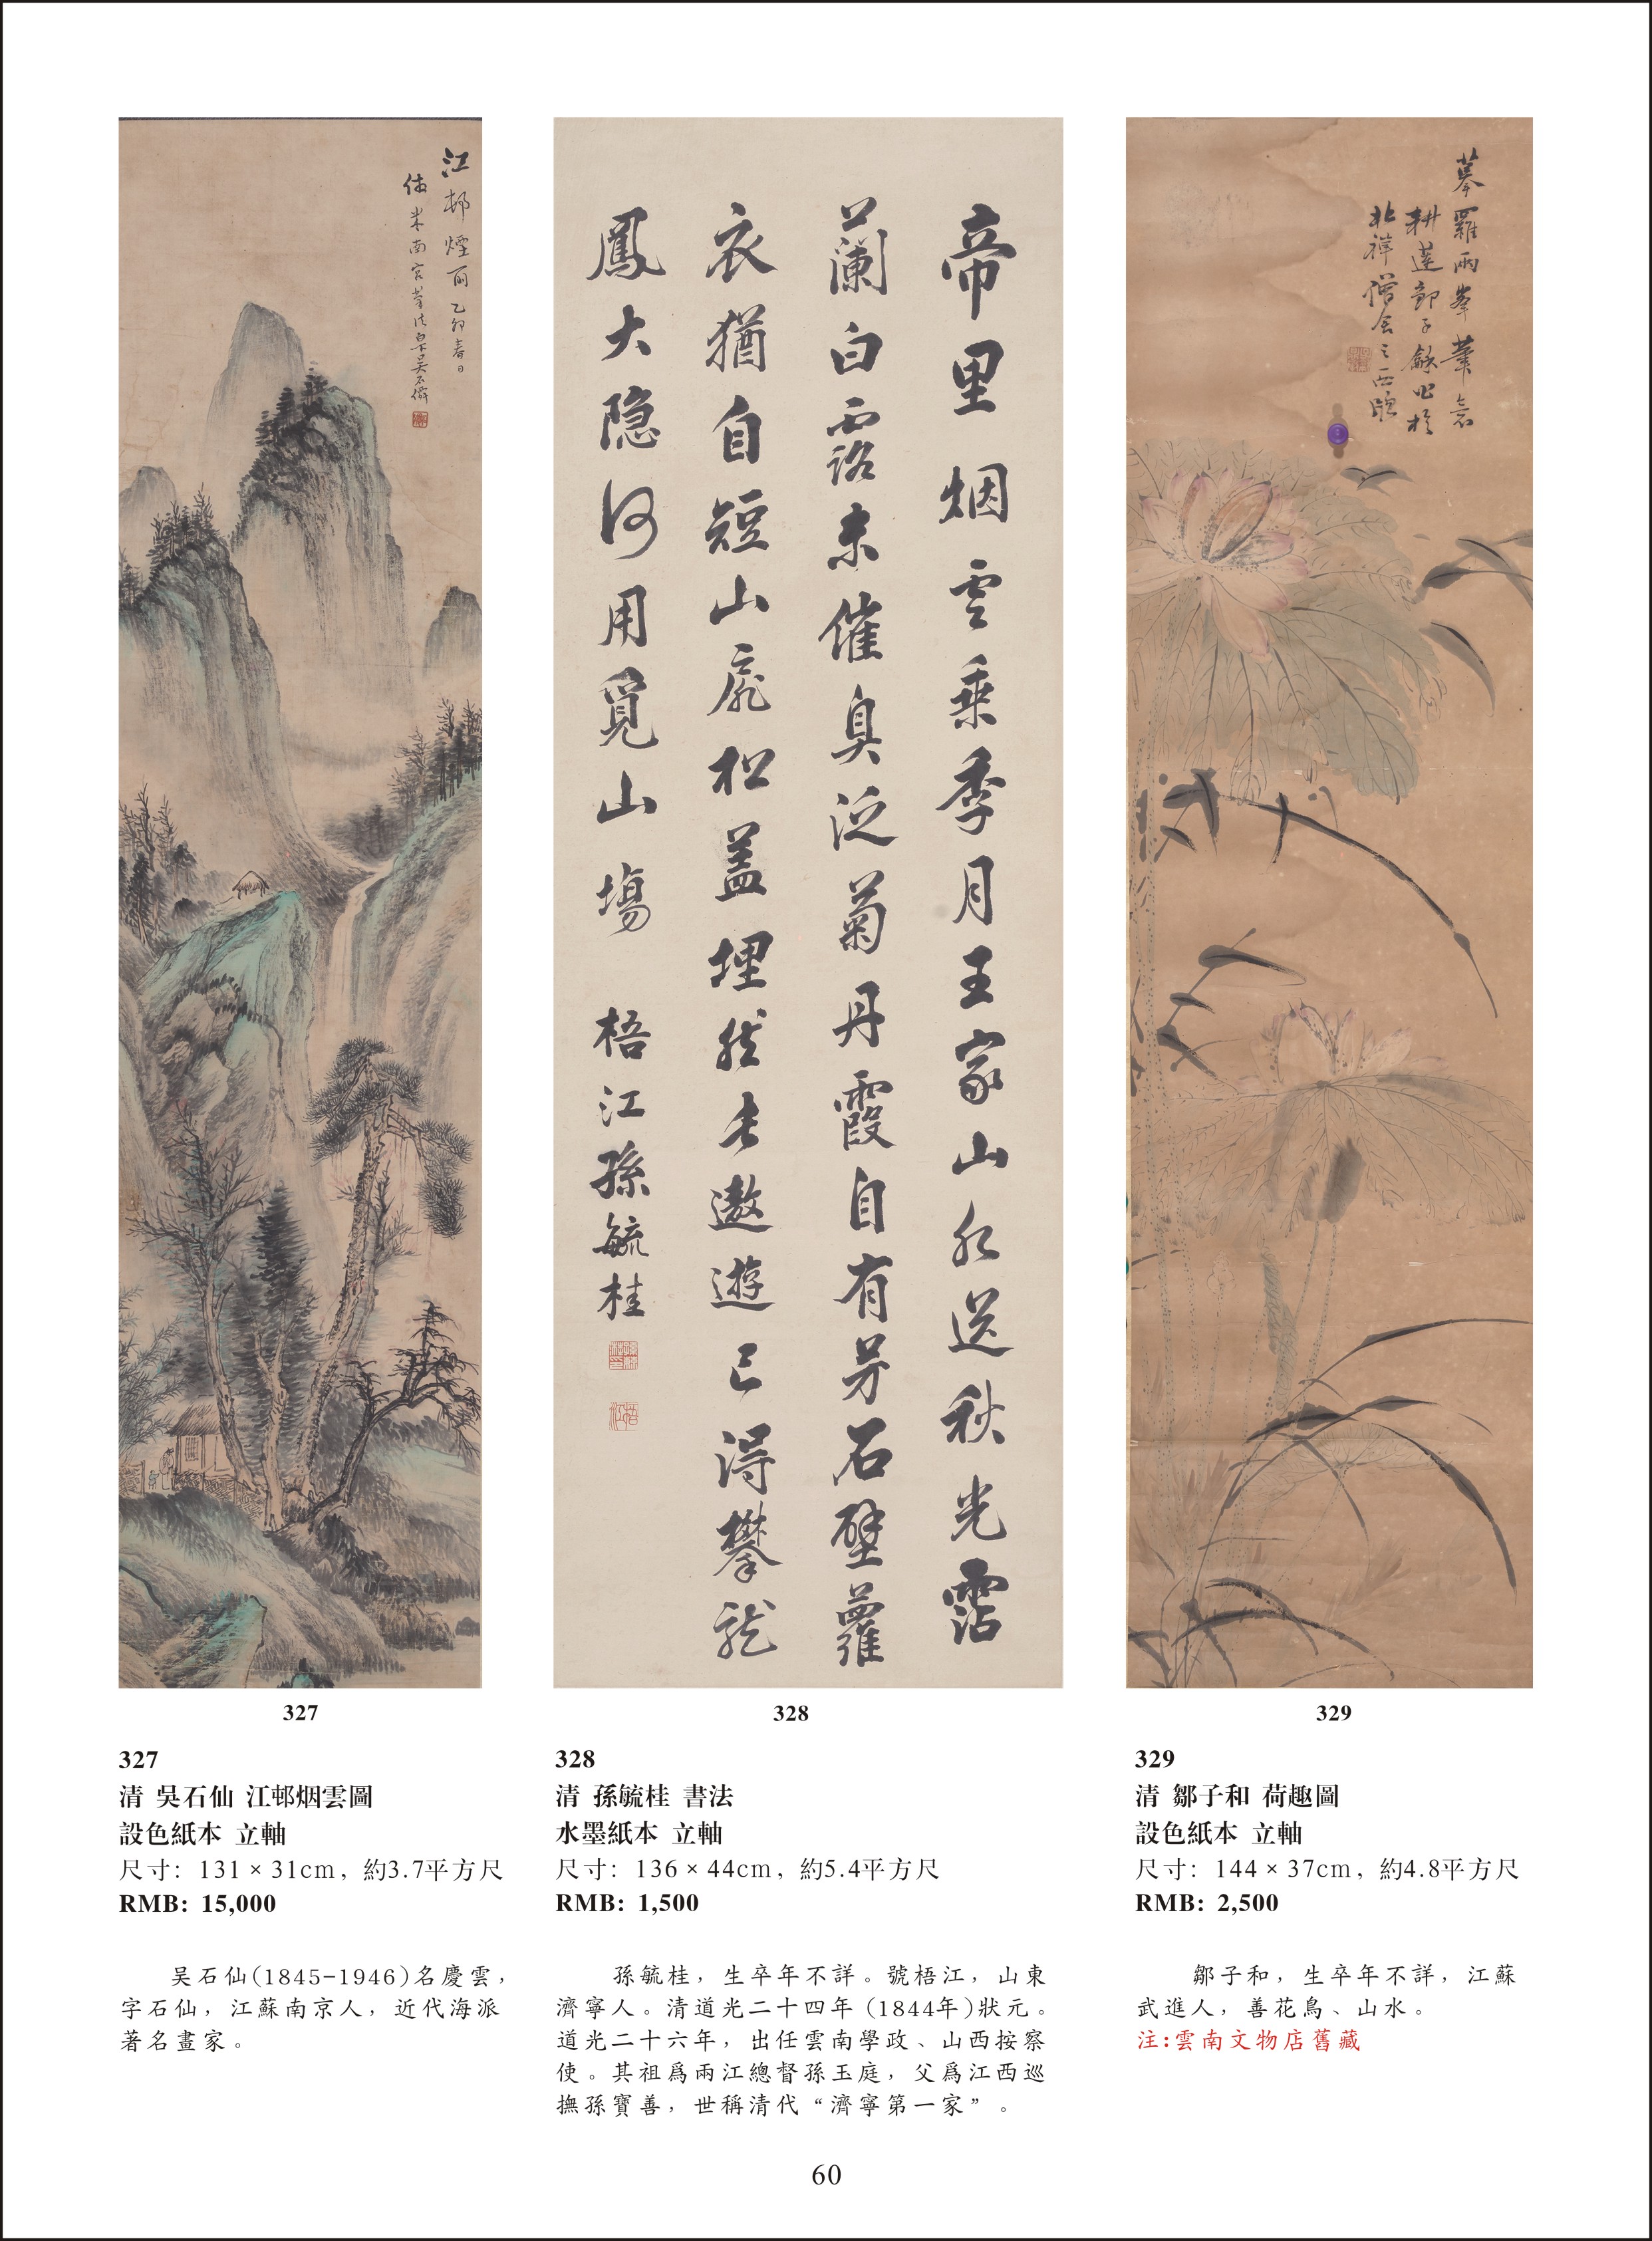 江邨煙雨 乙卯春日
仿米南宮筆法白下吳石僊
帝里烟雲乘季月王家山水送秋光霑
蘭白露未催臭泛菊丹霞自有芳石壁蘿
衣猶自短山扉松蓋埋然去遨遊已得攀龍
鳳大隐何用覓山塲 梧江孫毓桂
摹羅兩峯筆意
耕蓮鄒子龢作於
北禪僧舍之西牕
327
328
329
327
清 吳石仙 江邨烟雲圖
設色紙本 立軸
尺寸: 131×31cm, 約3.7平方尺
RMB: 15,000
吴石仙(1845-1946)名慶雲,
字石仙, 江蘇南京人, 近代海派
著名畫家。
328
清 孫毓桂 書法
水墨紙本 立軸
尺寸: 136×44cm, 約5.4平方尺
RMB: 1,500
孫毓桂, 生卒年不詳。號梧江, 山東
濟寧人。清道光二十四年 (1844年)狀元。
道光二十六年, 出任雲南學政、山西按察
使。其祖爲兩江總督孫玉庭, 父爲江西巡
撫孫寶善, 世稱清代“濟寧第一家”。
329
清 鄒子和 荷趣圖
設色紙本 立軸
尺寸: 144×37cm, 約4.8平方尺
RMB: 2,500
鄒子和, 生卒年不詳, 江蘇
武進人, 善花鳥、山水。
注:雲南文物店舊藏
60